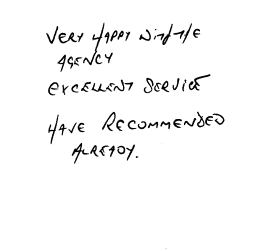 VERY HAPPY WITH THE
AGENCY
EXCELLENT SERVICE
HAVE RECOMMENDED
ALREADY.